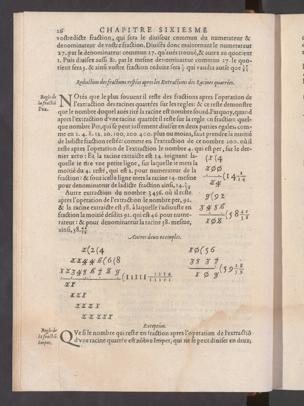 26 CHAPITRE SIXIESME
vostredicte fraction, qui sera le diuiseur commun du numerateur &
denominateur de vostre fraction. Diuisés donc maintenant le numerateur
27. par le denominateur commun 27. qu'aués trouué, & aurés au quotient
1. Puis diuisés aussi par le mesme denominateur commun 27. le quo-
tient sera & ainsi vostre fraction reduite sera qui vaudra autãt que
Reduction des fractions restãs apres les Extractions des Racines quarrées.
Regle de
la fractiõ
Pax.
NOtés que le plus souuent il reste des fractions apres l'operation de
l'extraction des racines quarrées sur les regles: & ce reste demonstre
que le nombre duquel aués tiré la racine est nombre sourd. Pourquoy, quãd
apres l'extraction d'vne racine quarrée il reste sur la regle en fraction quel-
que nombre Per, qui se peut iustement diuiser en deux parties egales, com-
me en 2. 4. 8. 12. 20. 100. 200 & c. plus ou moins, faut prendre la moitié
de ladicte fraction restée: comme en l'extraction de ce nombre 200. où il
reste apres l'operation de l'extraction le nombre 4. qui est per, sur le der-
nier zero: Et la racine extraicte est 14. ioignant la-
quelle ie tire vne petite ligne, sur laquelle ie mets la
moitié du 4. resté, qui est 2. pour numerateur de la
fraction: & sous icelle ligne mets la racine 14. mesme
pour denominateur de ladicte fraction ainsi, 14.
Autre extraction du nombre 3456. où il reste
apres l'operation de l'extraction le nombre per, 92.
& la racine extraicte est 58. à laquelle i'adiouste en
fraction la moitié desdits 92. qui est 46 pour nume-
rateur: & pour denominateur la racine 58. mesme,
ainsi, 58.
Autres deux exemples.
Exception.
Regle de
la fractiõ
Imper.
QVe si le nombre qui reste en fraction apres l'operation de l'extractiõ
d'vne racine quarrée est nõbre Imper, qui ne se peut diuiser en deux,